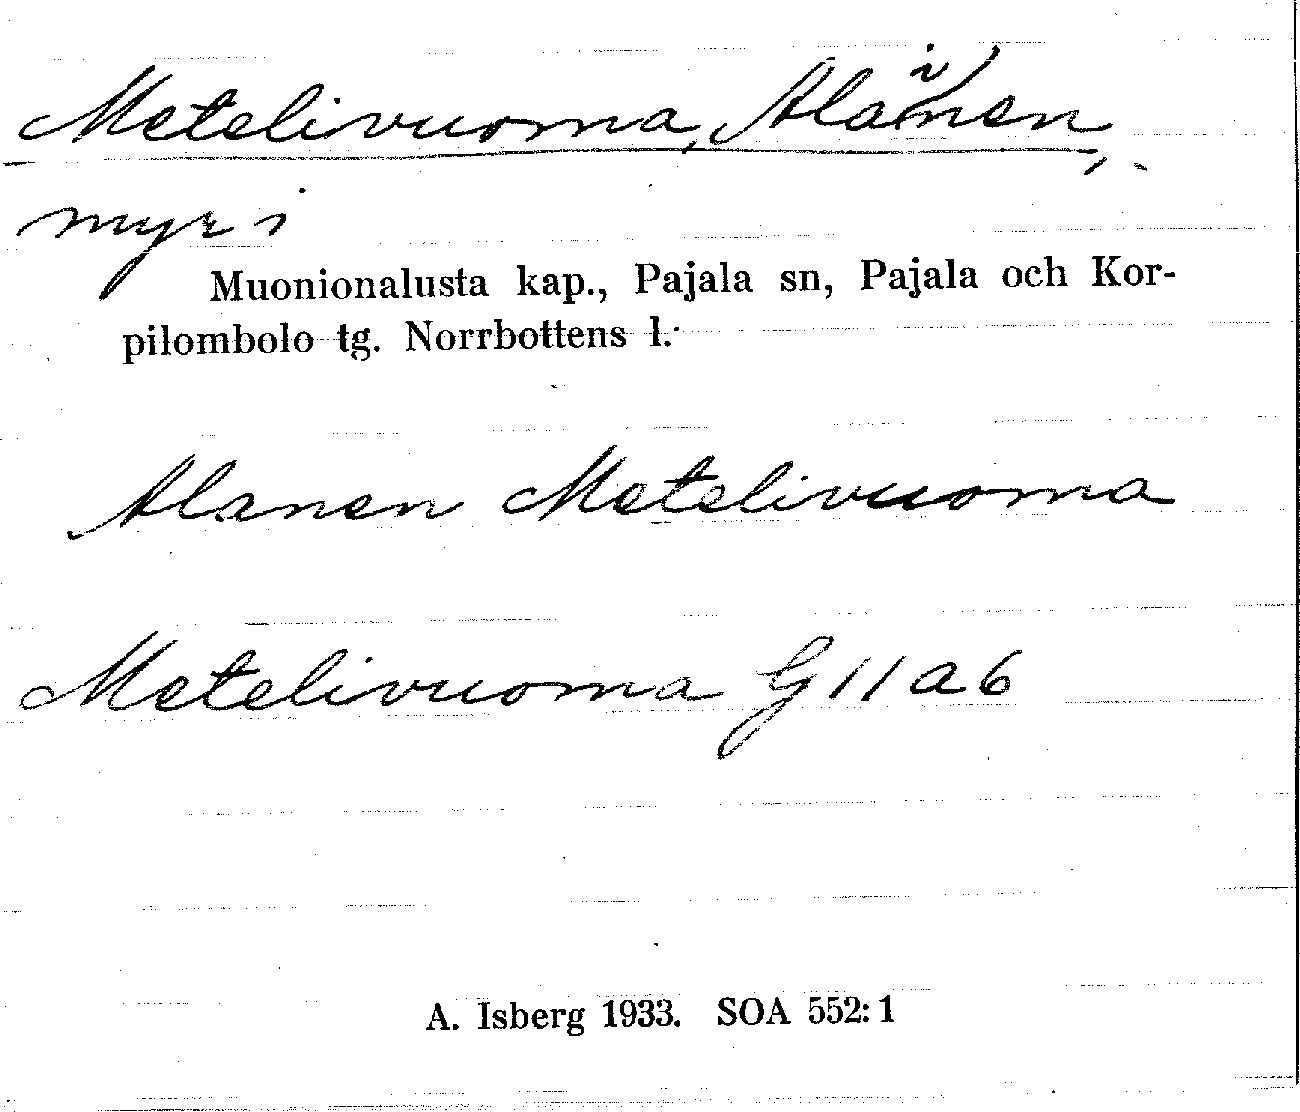 Metelivuoma, Alainen,
myr i
Muonionalusta kap., Pajala sn, Pajala och Kor-
pilombolo tg. Norrbottens l.
Alanen Metelivuoma
Metelivuoma G 11 a 6
A. Isberg 1933. SOA 552: 1